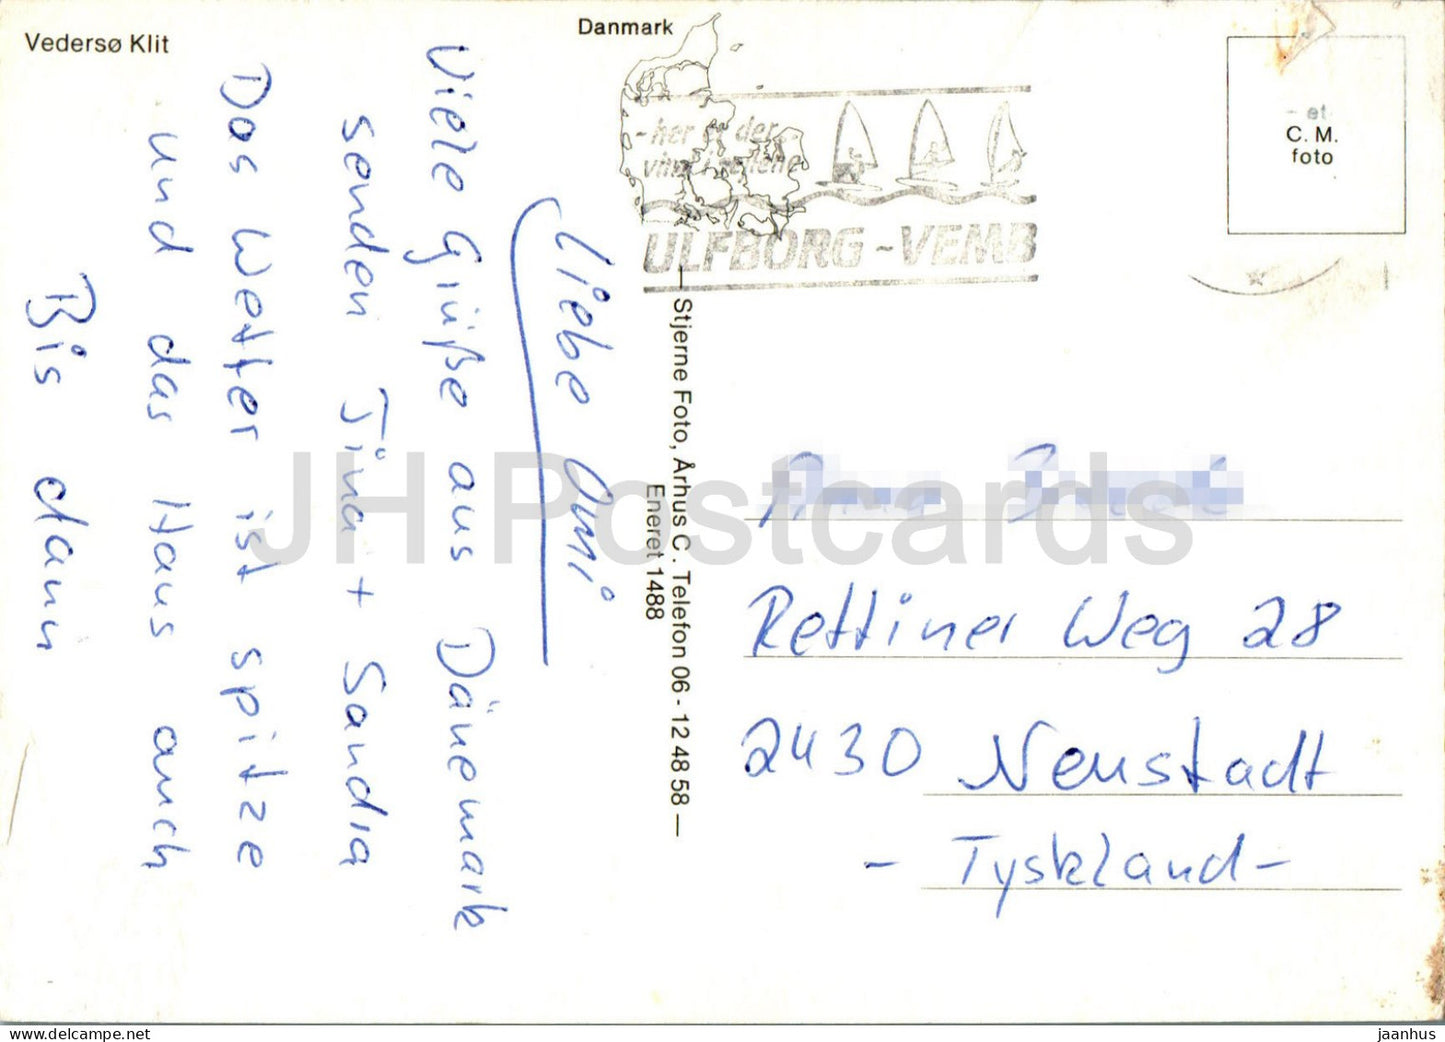 Vedersø Klit
Danmark
- her er der
vind i sejlene
ULFBORG - VEMB
- et
C. M.
foto
Liebe Omi
Viele Grüße aus Dänemark
senden Tina + Sandra
Das Wetter ist spitze
und das Haus auch
Bis dann
— Stjerne Foto, Århus C . Telefon 06 - 12 48 58 —
Eneret 1488
Rettiner Weg 28
2430 Neustadt
- Tyskland -
JH Postcards
jaanhus